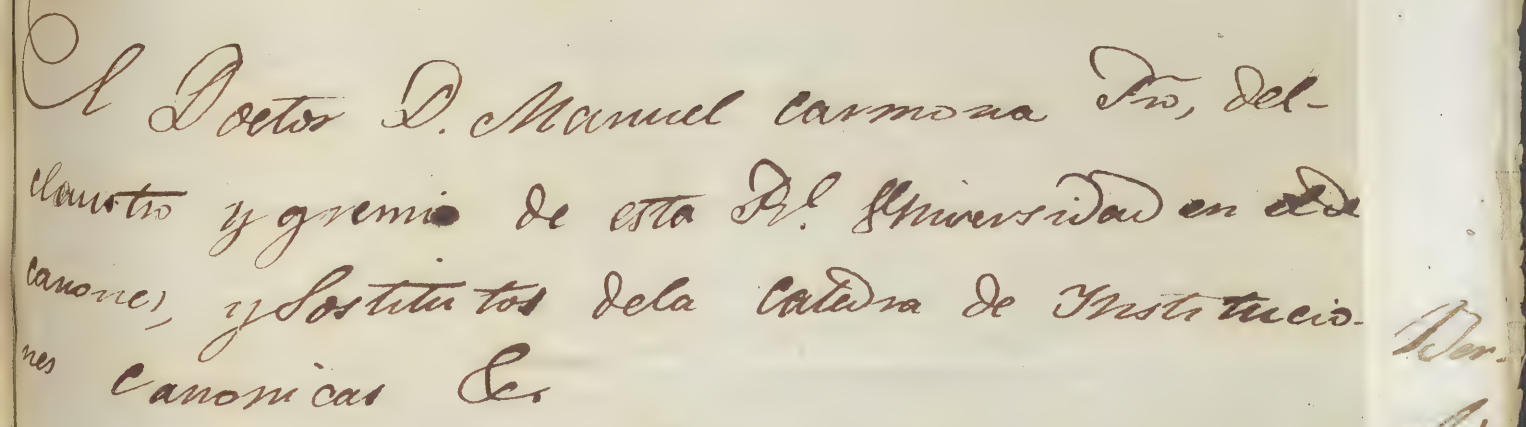 El Doctor D. Manuel Carmona Pro, del-
claustro y gremio de esta Rl. Universidad en el de
canones, y Sostitutor dela Catedra de Institucio-
nes Canonicas &c.
Der-